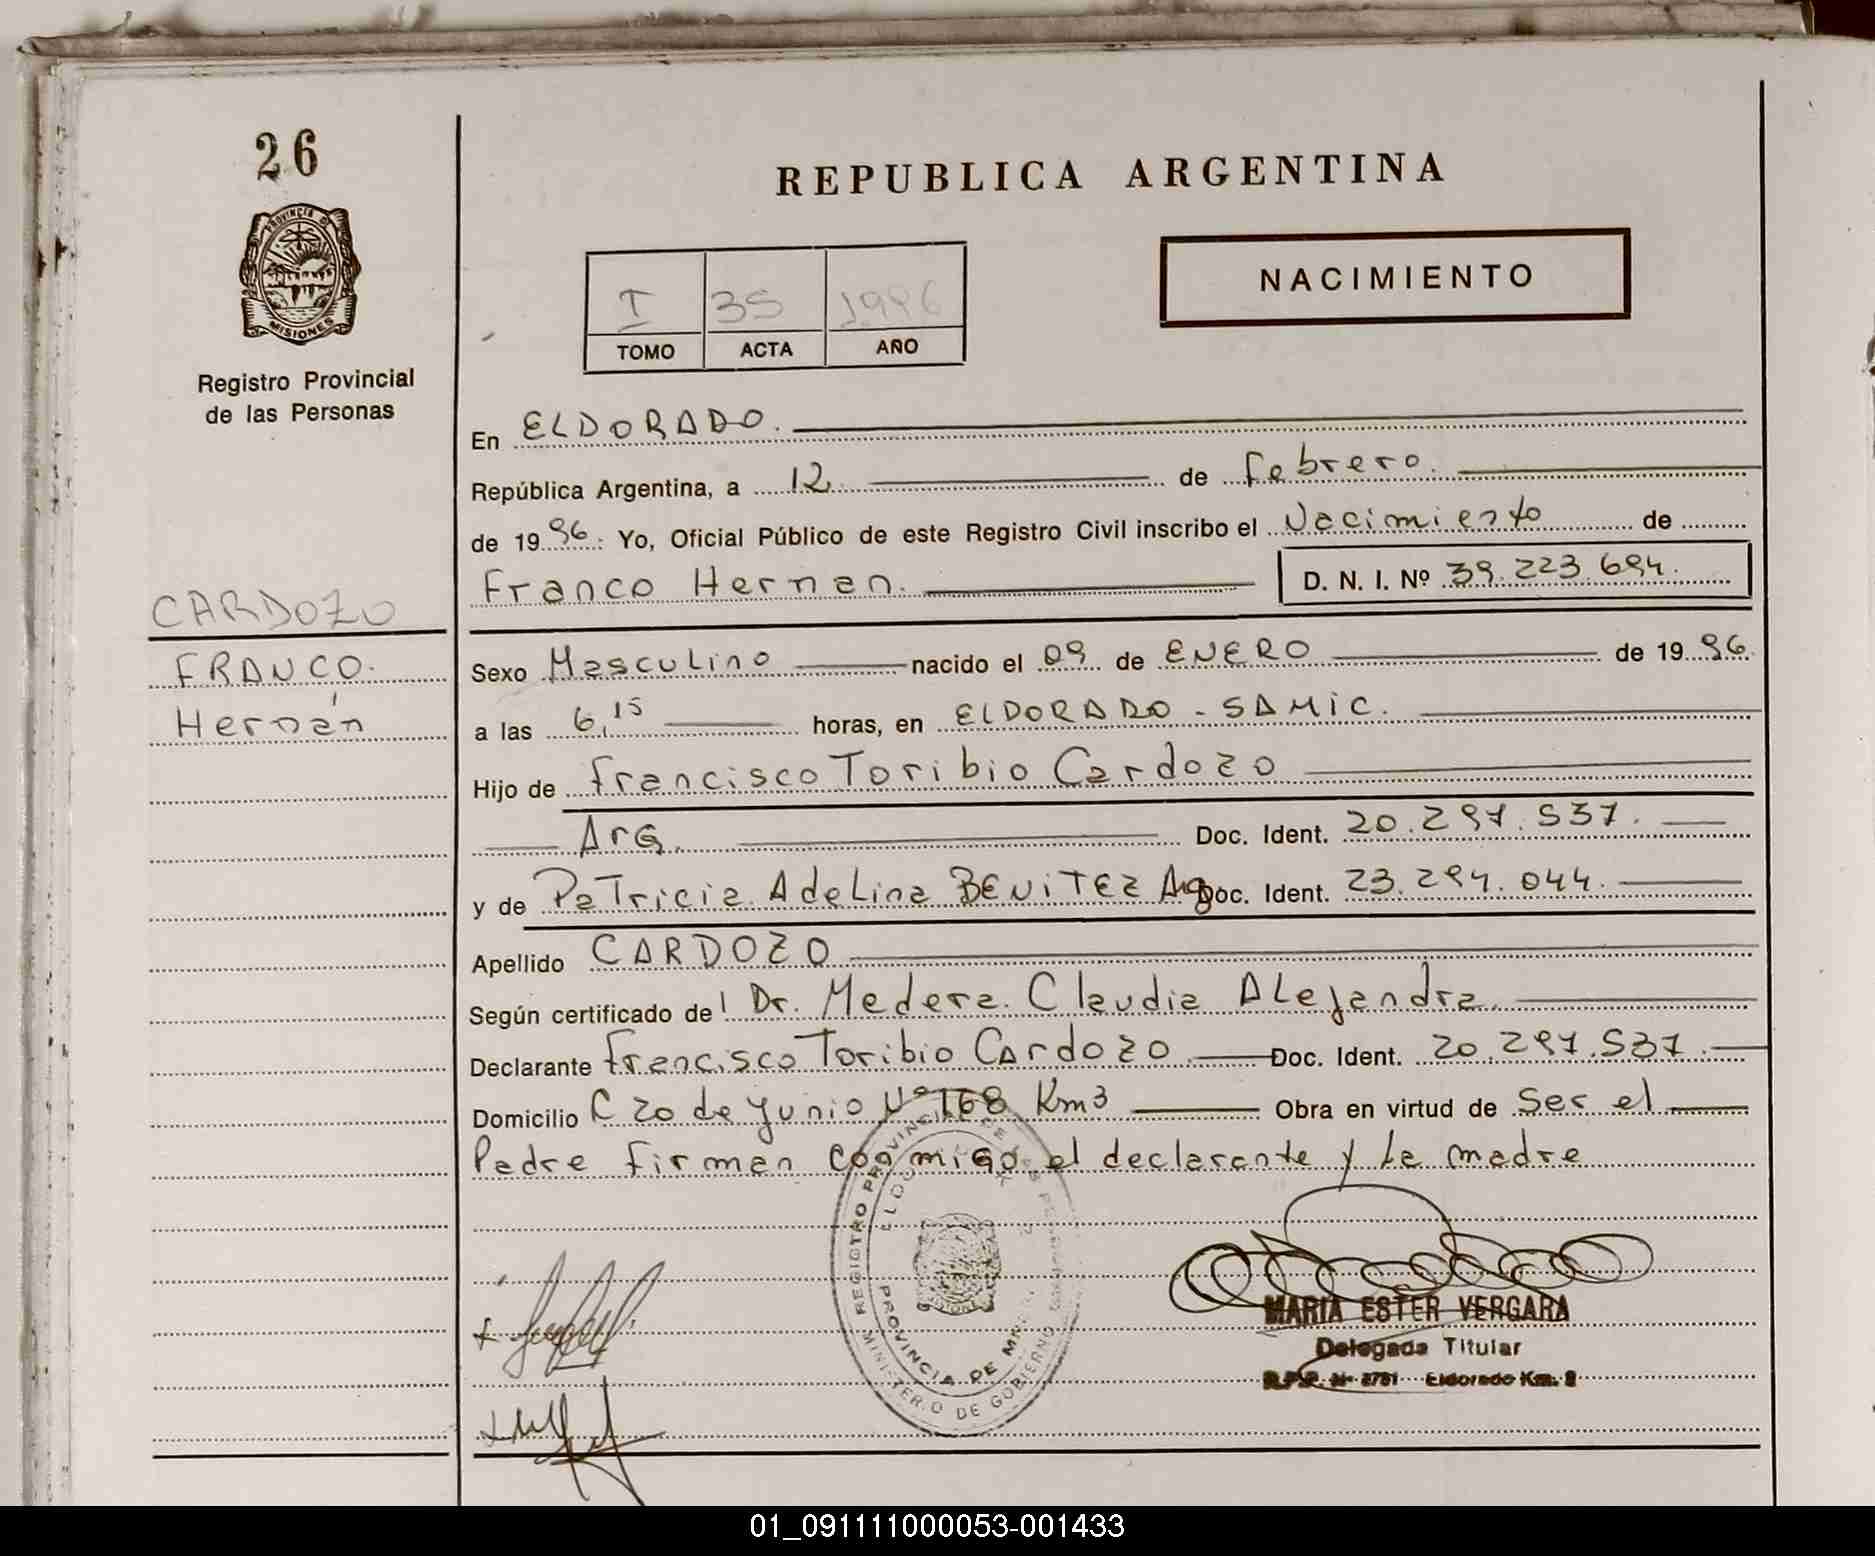 26
PROVINCIA DE
MISIONES
Registro Provincial
de las Personas
REPUBLICA ARGENTINA
I 35 1996
TOMO ACTA AÑO
NACIMIENTO
En ELDORADO.
República Argentina, a 12 de Febrero.
de 1996. Yo, Oficial Público de este Registro Civil inscribo el Nacimiento de
Franco Hernan. D. N. I. Nº 39.223.694.
CARDOZO
FRANCO.
Hernán
Sexo Masculino nacido el 09 de ENERO de 1996.
a las 6,15 horas, en ELDORADO - SAMIC.
Hijo de Francisco Toribio Cardozo
Arg. Doc. Ident. 20.297.537.
y de Patricia Adelina BENITEZ Arg Doc. Ident. 23.294.044.
Apellido CARDOZO
Según certificado de Dr. Madera. Claudia Alejandra.
Declarante Francisco Toribio Cardozo Doc. Ident. 20.297.537.
Domicilio C 20 de Junio Nº 168 Km3 Obra en virtud de Ser el
Padre firman conmigo el declarante y la madre
REGISTRO PROVINCIAL DE LAS PERSONAS
ELDORADO
PROVINCIA DE MNES.
MINISTERIO DE GOBIERNO
MARIA ESTER VERGARA
Delegada Titular
R.P.P. Nº 2781 Eldorado Km.
01_091111000053-001433